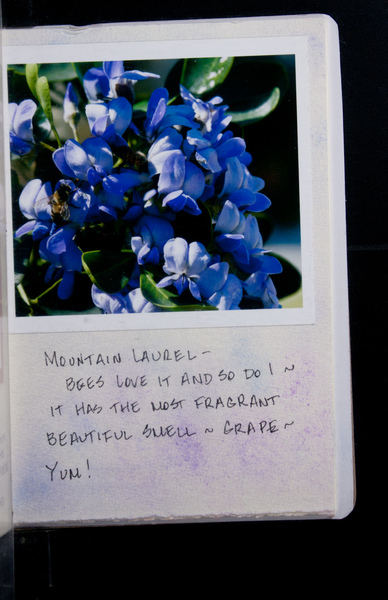 MOUNTAIN LAUREL –
BEES LOVE IT AND SO DO I ~
IT HAS THE MOST FRAGRANT
BEAUTIFUL SMELL ~ GRAPE ~
YUM!